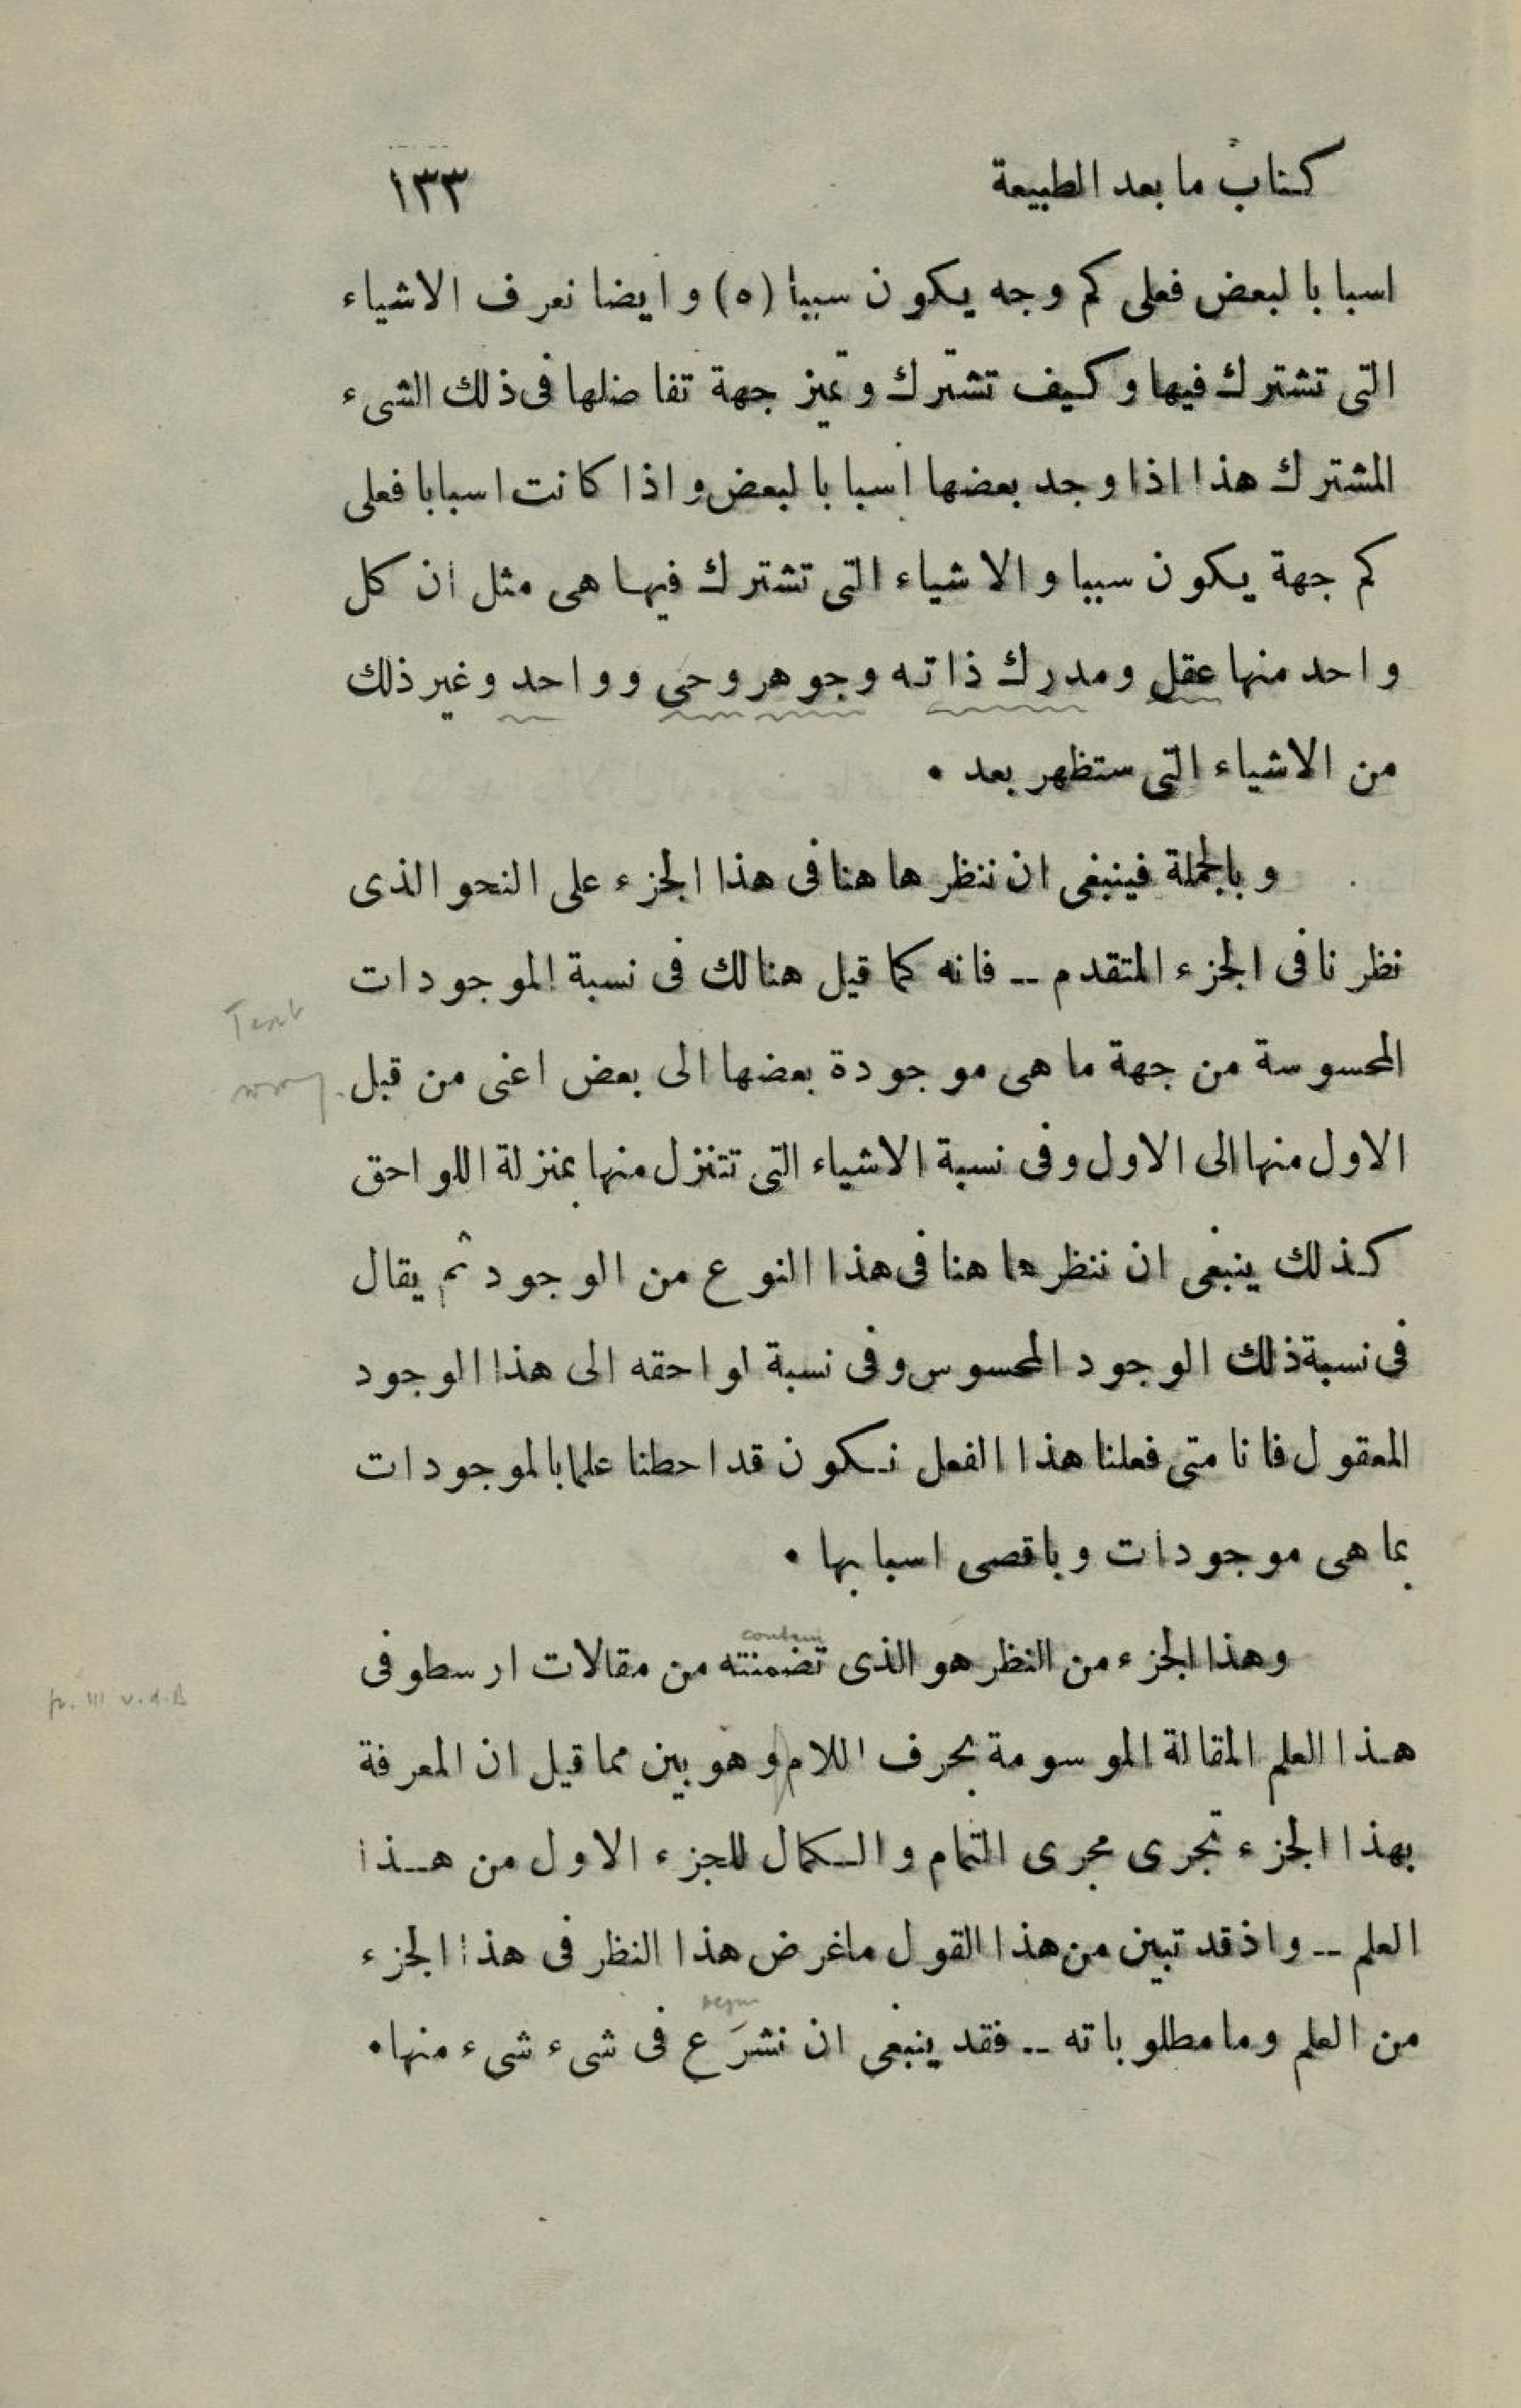 كتاب ما بعد الطبيعة ١٣٣
اسبابا لبعض فعلى كم وجه يكون سببا (٥) وايضا نعرف الاشياء
التى تشترك فيها وكيف تشترك وتميز جهة تفاضلها فى ذلك الشىء
المشترك هذا اذا وجد بعضها اسبابا لبعض واذا كانت اسبابا فعلى
كم جهة يكون سببا والاشياء التى تشترك فيها هى مثل ان كل
واحد منها عقل ومدرك ذاته وجوهر وحى وواحد وغير ذلك
من الاشياء التى ستظهر بعد ٠
وبالجملة فينبغى ان ننظر هاهنا فى هذا الجزء على النحو الذى
نظرنا فى الجزء المتقدم -- فانه كما قيل هنالك فى نسبة الموجودات
Text
المحسوسة من جهة ما هى موجودة بعضها الى بعض اعنى من قبل
wrong
الاول منها الى الاول وفى نسبة الاشياء التى تتنزل منها بمنزلة اللواحق
كذلك ينبغى ان ننظر هاهنا فى هذا النوع من الوجود ثم يقال
فى نسبة ذلك الوجود المحسوس وفى نسبة لواحقه الى هذا الوجود
المعقول فانا متى فعلنا هذا الفعل نكون قد احطنا علما بالموجودات
بما هى موجودات وباقصى اسبابها ٠
contain
وهذا الجزء من النظر هو الذى تضمنته من مقالات ارسطو فى
p. III v.d.B
هذا العلم المقالة الموسومة بحرف اللام وهو بين مما قيل ان المعرفة
بهذا الجزء تجرى مجرى التمام والكمال للجزء الاول من هذا
العلم -- واذ قد تبين من هذا القول ما غرض هذا النظر فى هذا الجزء
begin
من العلم وما مطلوباته -- فقد ينبغى ان نشرَع فى شىء شىء منها ٠